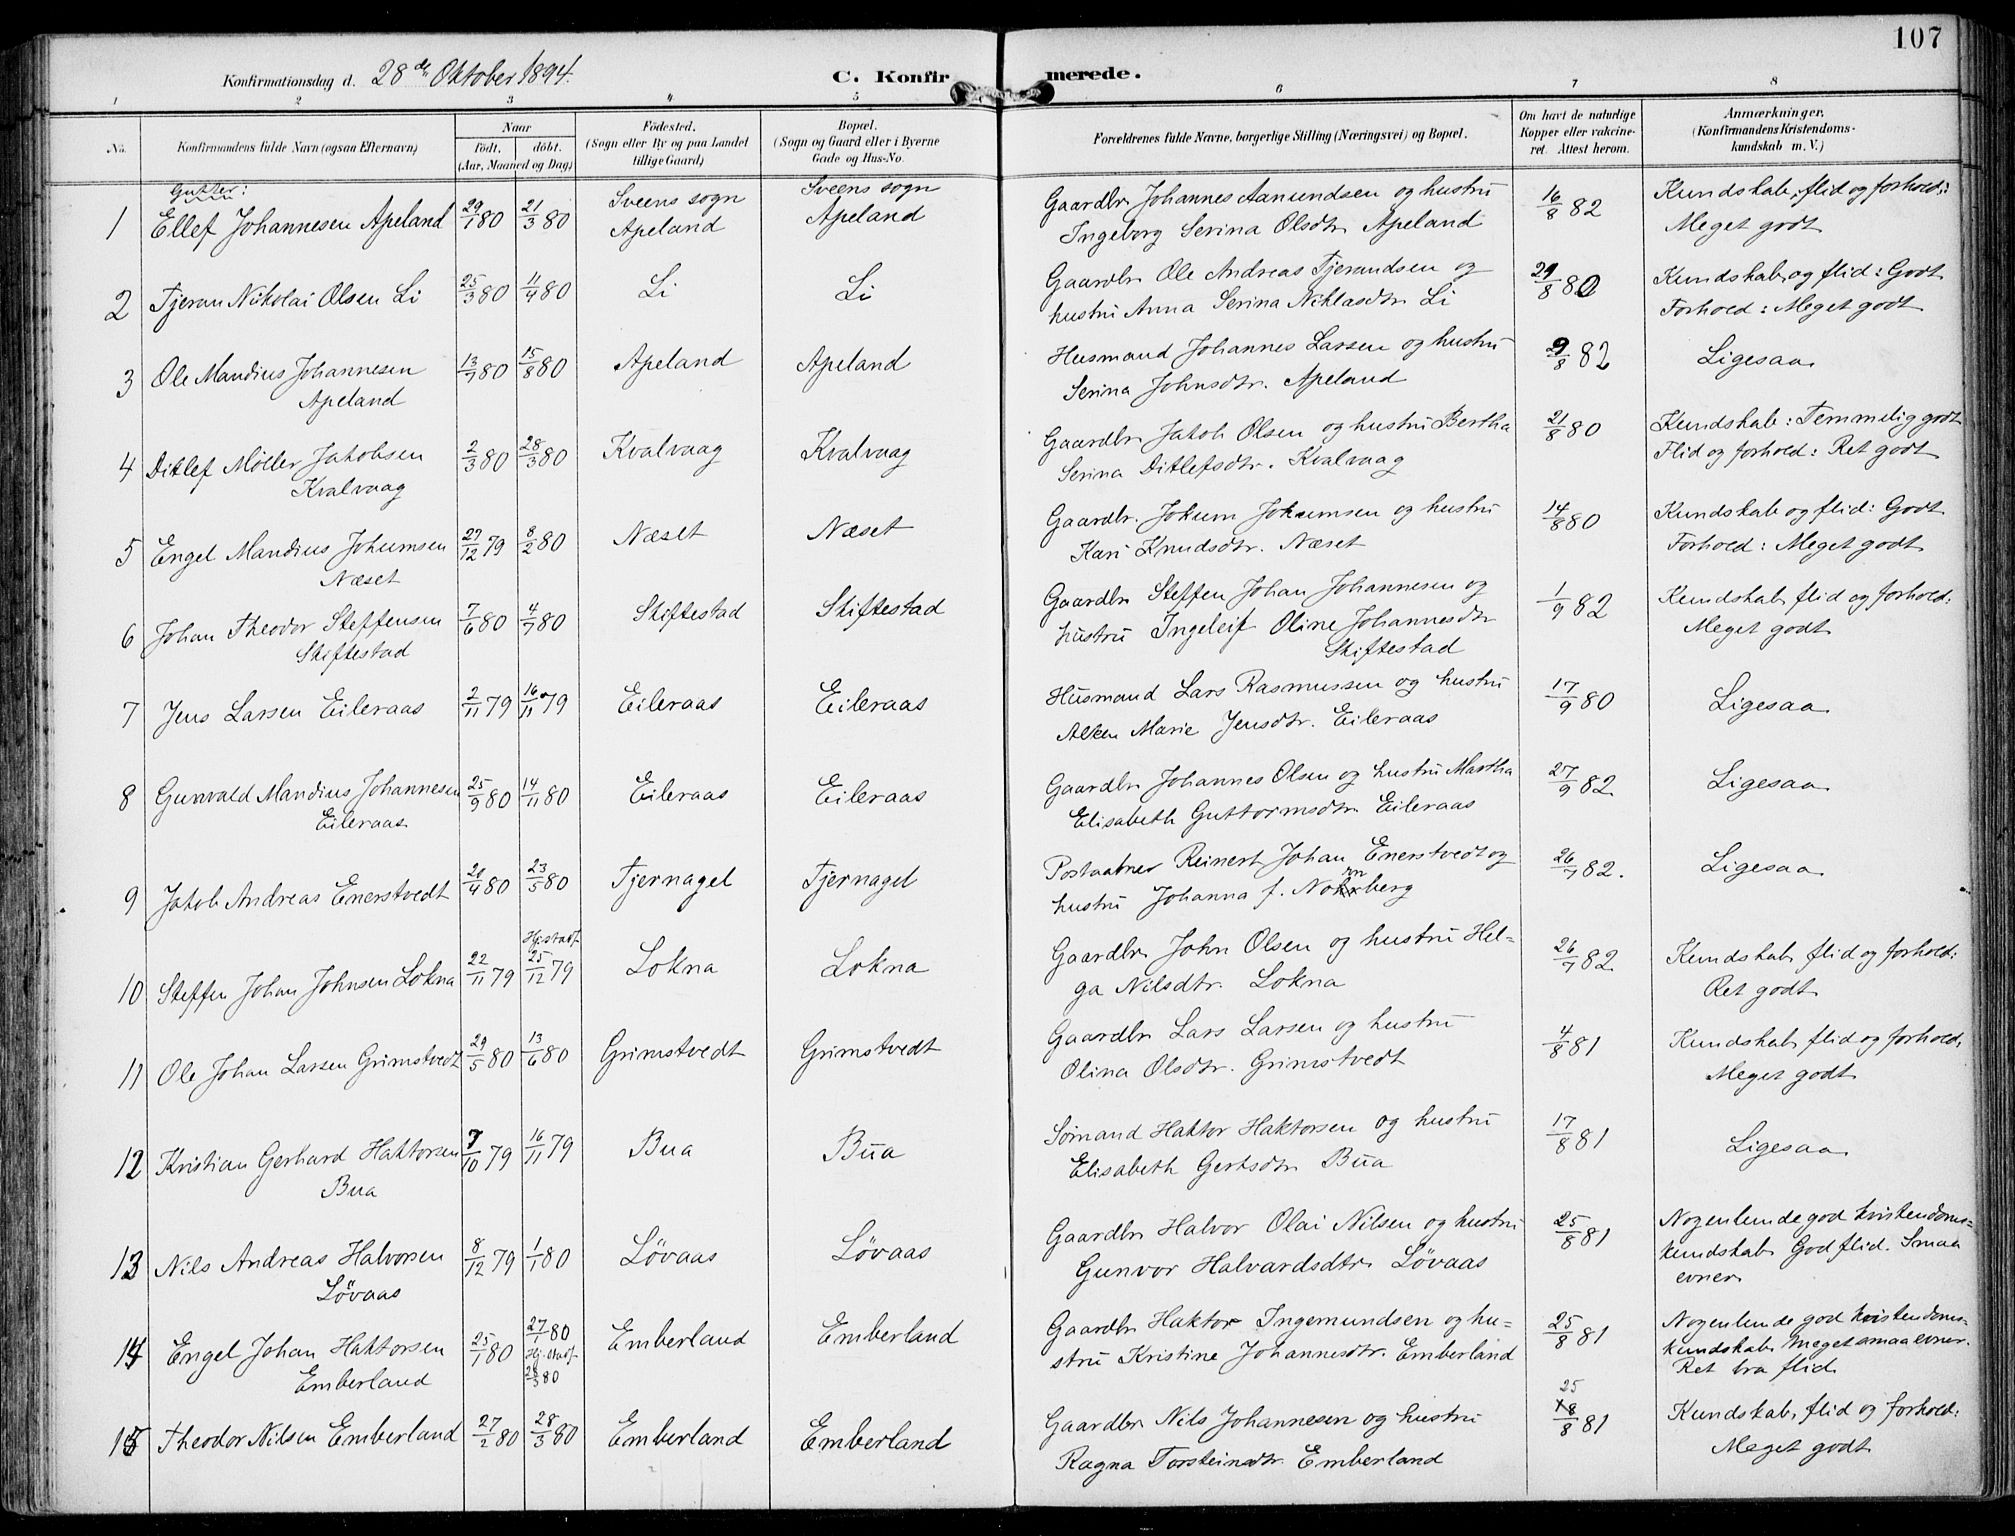 107
Konfirmationsdag d. 28de Oktober 1894.
C. Konfirmerede.
1 2 3 4 5 6 7 8
No.
Konfirmandens fulde Navn (ogsaa Efternavn)
Naar
født, døbt.
(Aar, Maaned og Dag)
Fødested.
(Sogn eller By og paa Landet
tillige Gaard)
Bopæl.
(Sogn og Gaard eller i Byerne
Gade og Hus-No.
Forældrenes fulde Navne, borgerlige Stilling (Næringsvei) og Bopæl.
Om havt de naturlige
Kopper eller vakcine-
ret. Attest herom.
Anmærkninger.
(Konfirmandens Kristendoms-
kundskab m. V.)
Gutter:
1 Ellef Johannesen Apeland 29/1 80 21/3 80 Sveens sogn Apeland Sveens sogn Apeland
Gaardbr. Johannes Aamundsen og hustru
Ingeborg Serina Olsdtr. Apeland
16/8 82
Kundskab, flid og forhold:
Meget godt
2 Tjeran Nikolai Olsen Li 25/3 80 11/4 80 Li Li
Gaardbr. Ole Andreas Tjerandsen og
hustru Anna Serina Niklasdtr. Li
29/8 80
Kundskab og flid: Godt
Forhold: Meget godt
3 Ole Mandius Johannesen
Apeland
13/7 80 15/8 80 Apeland Apeland
Husmand Johannes Larsen og hustru
Serina Johnsdtr. Apeland
9/8 82
Ligesaa
4 Ditlef Møller Jakobsen
Kvalvaag
2/3 80 28/3 80 Kvalvaag Kvalvaag
Gaardbr. Jakob Olsen og hustru Bertha
Serina Ditlefsdtr. Kvalvaag
21/8 80
Kundskab: Temmelig godt
Flid og forhold: Ret godt
5 Engel Mandius Johumsen
Næset
27/12 79 8/2 80 Næset Næset
Gaardbr. Jokum Jokumsen og hustru
Kari Knudsdtr. Næset
14/8 80
Kundskab og flid: Godt
Forhold: Meget godt
6 Johan Theodor Steffensen
Skiftestad
7/6 80 4/7 80 Skiftestad Skiftestad
Gaardbr. Steffen Johan Johannesen og
hustru Ingeleif Oline Johannesdtr
Skiftestad
1/9 82
Kundskab, flid og forhold:
Meget godt
7 Jens Larsen Eileraas 2/11 79 16/11 79 Eileraas Eileraas
Husmand Lars Rasmussen og hustru
Marie Jensdtr. Eileraas
17/9 80
Ligesaa
8 Gunvald Mandius Johannesen
Eileraas
25/9 80 14/11 80 Eileraas Eileraas
Gaardbr. Johannes Olsen og hustru Martha
Elisabeth Guttormsdtr. Eileraas
27/9 82
Ligesaa
9 Jakob Andreas Enerstvedt 20/4 80 23/5 80 Tjernagel Tjernagel
Postaabner Reinert Johan Enerstvedt og
hustru Johanna f.
26/7 82.
Ligesaa
10 Steffen Johan Johnsen Lokna 22/11 79 Hj.stadf. 25/12 79 Lokna Lokna
Gaardbr. John Olsen og hustru Hel-
ga Nilsdtr. Lokna
26/7 82
Kundskab, flid og forhold:
Ret godt
11 Ole Johan Larsen Grimstvedt 29/5 80 13/6 80 Grimstvedt Grimstvedt
Gaardbr. Lars Larsen og hustru
Olina Olsdtr. Grimstvedt
4/8 81
Kundskab, flid og forhold,
Meget godt
12 Kristian Gerhard Haktorsen
Bua
7/10 79 16/11 79 Bua Bua
Sømand Haktor Haktorsen og hustru
Elisabeth Gertsdtr. Bua
17/8 81
Ligesaa
13 Nils Andreas Halvorsen
Løvaas
8/12 79 1/1 80 Løvaas Løvaas
Gaardbr. Halvor Olai Nilsen og hustru
Gunvor Halvardsdtr. Løvaas
25/8 81
Nogenlunde god kristendoms-
kundskab. God flid. Smaa
evner
14 Engel Johan Haktorsen
Emberland
25/1 80 27/1 80 Hj. stadf. 28/3 80 Emberland Emberland
Gaardbr. Haktor Ingemundsen og hu-
stru Kristine Johannesdtr. Emberland
25/8 81
Nogenlunde god kristendoms-
kundskab. Meget smaa evner.
Ret bra flid
15 Theodor Nilsen Emberland 27/2 80 28/3 80 Emberland Emberland
Gaardbr. Nils Johannesen og hustru
Ragna Torsteinsdtr. Emberland
25/8 81
Kundskab, flid og forhold:
Meget godt